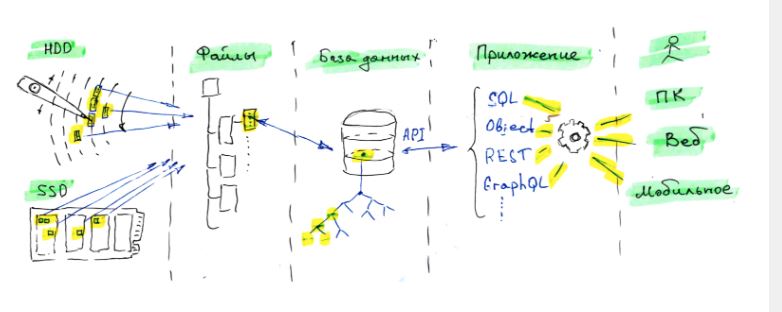 HDD
SSD
Файлы
База данных
API
Приложение
SQL
Object
REST
GraphQL
ПК
Веб
Мобильное